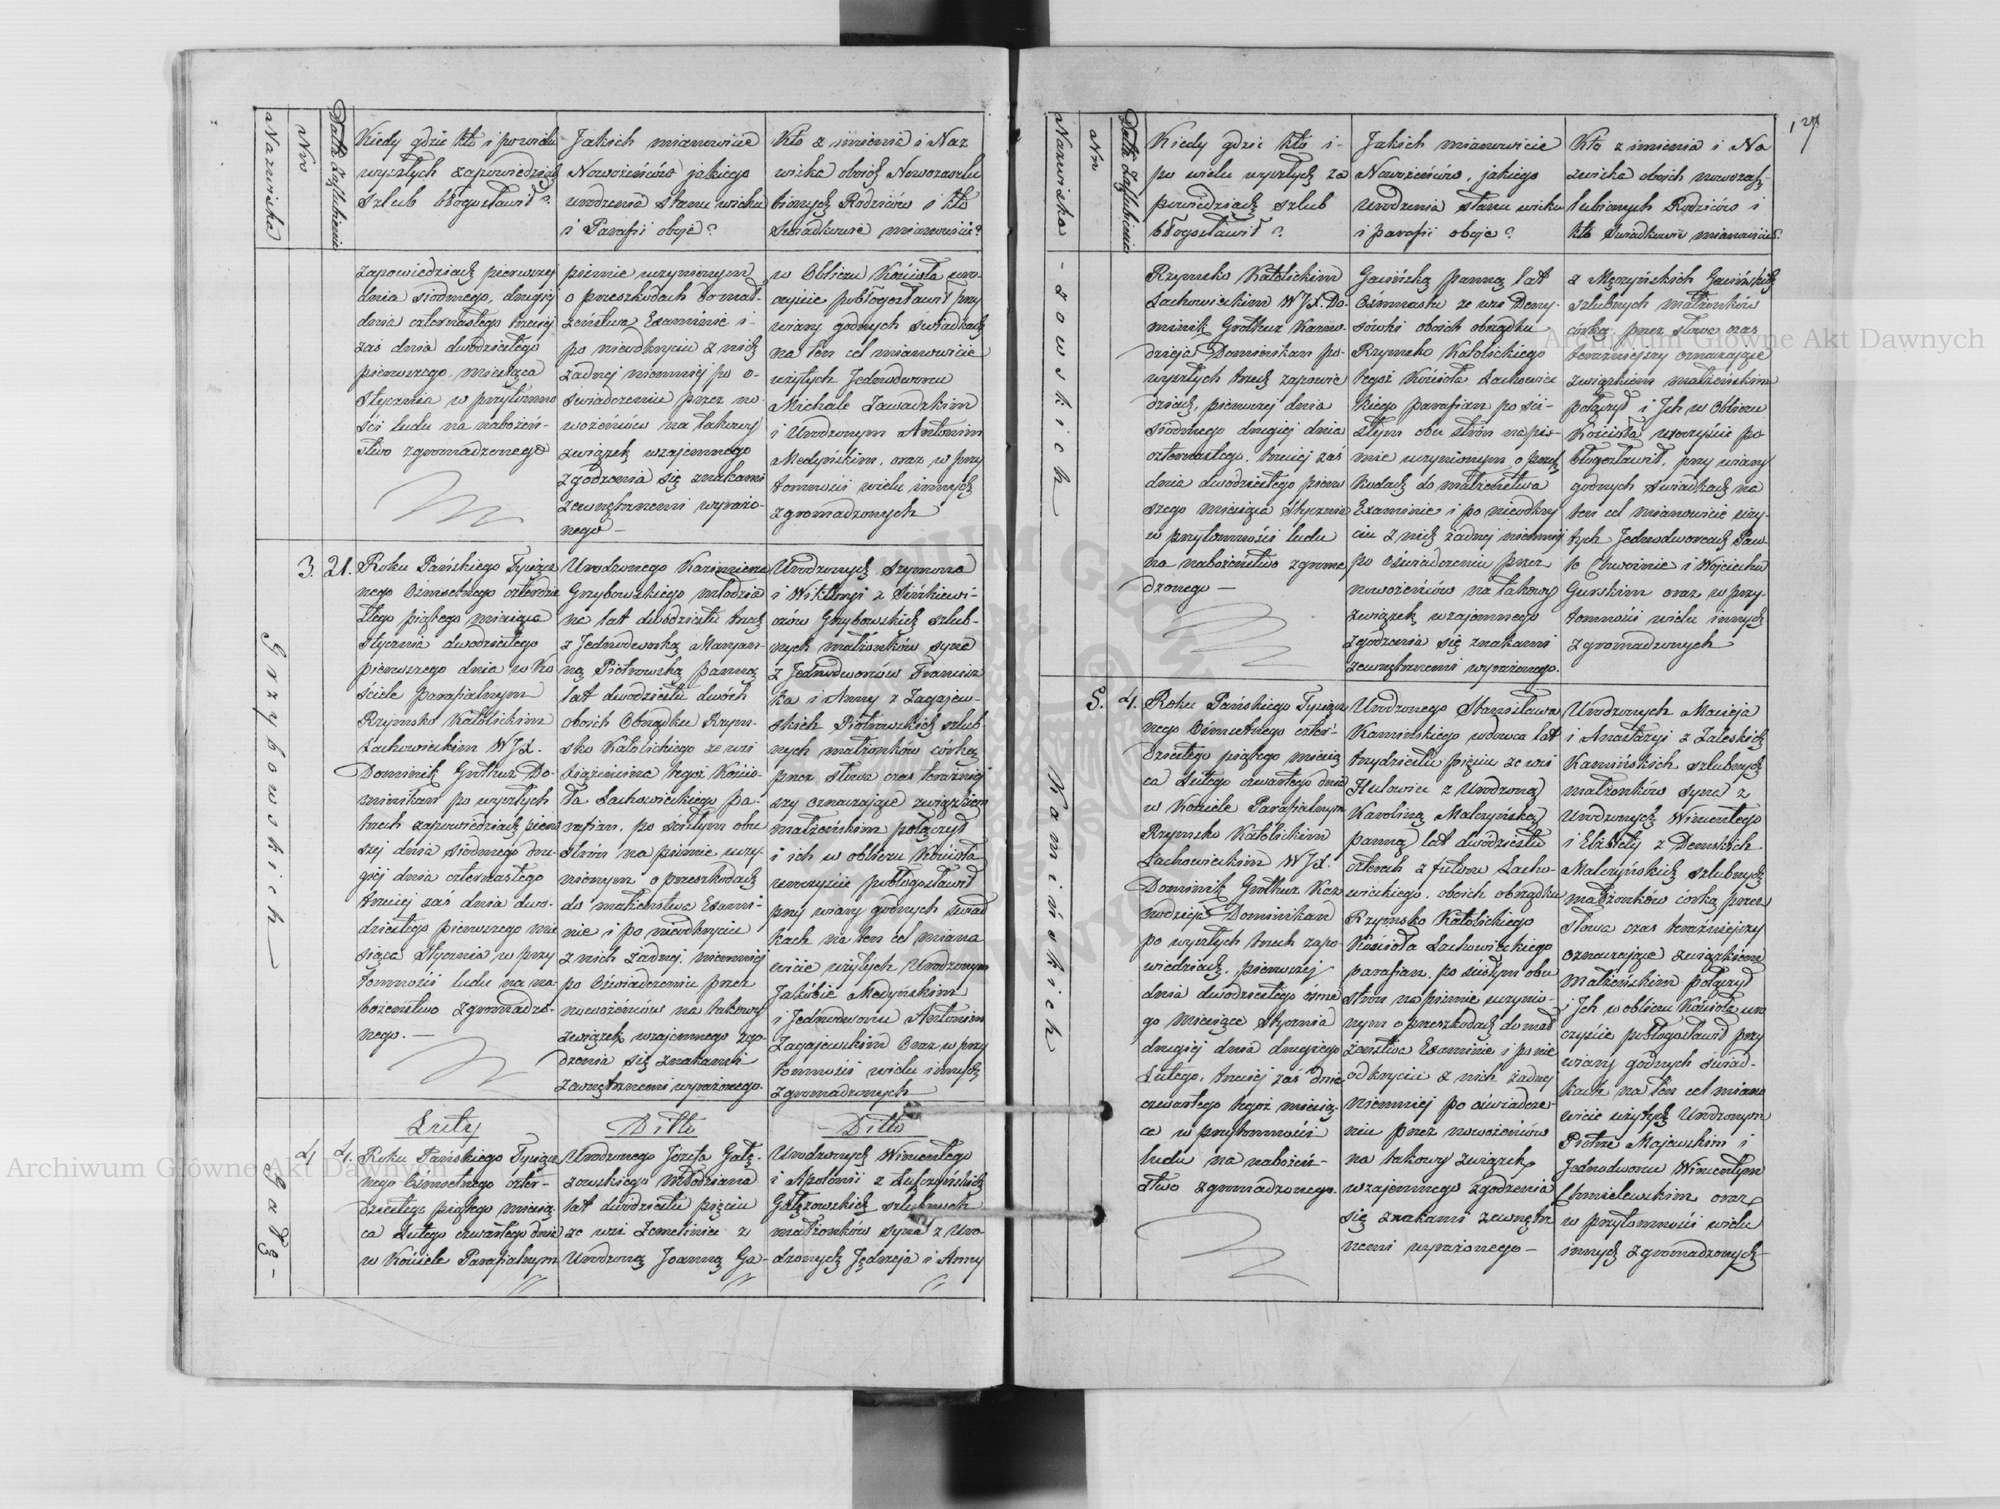 Nazwiska
Nro
Data Zaślubienia
Kiedy gdzie kto i po wielu
wyszłych zapowiedziach
szlub błogosławił?
Jakich mianowicie
Nowożeńców jakiego
urodzenia stanu wieku
i Parafii oboje?
Kto z imienia i Naz
wiska oboich Nowozaślu
bionych Rodziców i kto
Świadkowie mianowicie?
zapowiedziach pierwszej
dnia siódmego, drugiej
dnia czternastego trzeciej
zaś dnia dwudziestego
pierwszego miesiąca
Stycznia w przytomno
ści ludu na nabożeń-
stwo zgromadzonego
piśmie uczynionym
o przeszkodach do mał-
żeństwa Examinie i-
po nieodkryciu z nich
żadnej niemniej po o-
świadczeniu przez no-
wożeńców na takowy
związek wzajemnego
zgodzenia się znakami
zewnętrznemi wyrażo-
nego —
w Obliczu Kościoła uro-
czyście pobłogosławił przy
wiary godnych świadkach
na ten cel mianowicie
użytych Jednodworcu
Michale Zawadzkim
i Urodzonym Antonim
Medyńskim, oraz w przy
tomności wielu innych
zgromadzonych
Grzybowskich
3.
21.
Roku Pańskiego Tysiącz
nego Ośmsetnego czterdzie
stego piątego miesiąca
Stycznia dwudziestego
pierwszego dnia w Ko
ściele parafialnym
Rzymsko Katolickim
Lachowieckim WJX.
Dominik Grothuz Do-
minikan po wyszłych
trzech zapowiedziach pierw
szej dnia siódmego dru-
giej dnia czternastego
trzeciej zaś dnia dwu-
dziestego pierwszego mie
siąca Stycznia w przy
tomności ludu na na-
bożeństwo zgromadzo-
nego. —
Urodzonego Kazimierza
Grzybowskiego młodzia
na lat dwudziestu trzech
z Jednodworką Maryan-
ną Piotrowską panną
lat dwudziestu dwóch
oboich Obrządku Rzym-
sko Katolickiego ze wsi
tegoż Kościo-
ła Lachowieckiego pa-
rafian, po ścisłym obu
stron na piśmie uczy-
nionym o przeszkodach
do małżeństwa Exami-
nie i po nieodkryciu
z nich żadnej, niemniej
po Oświadczeniu przez
nowożeńców na takowy
związek wzajemnego zgo-
dzenia się znakami
zewnętrznemi wyrażonego.
Urodzonych Szymona
i Wiktoryi z Sińkiewi-
czów Grzybowskich szlub-
nych małżonków syna
z Jednodworców Francisz
ka i Anny z Zagajew-
skich Piotrowskich szlub-
nych małżonków córkę
przez słowa czas teraźniej
szy oznaczające związkiem
małżeńskim połączył
i ich w obliczu Kościoła
uroczyście pobłogosławił
przy wiary godnych świad
kach na ten cel miano
wicie użytych Urodzonym
Jakóbie Medyńskim
i Jednodworcu Antonim
Zagajewskim Oraz w przy
tomności wielu innych
zgromadzonych
Luty
Ditto
Ditto
Gałę-
4
4.
Roku Pańskiego Tysiącz
nego Ośmsetnego czter-
dziestego piątego miesią
ca Lutego czwartego dnia
w Kościele Parafialnym
Urodzonego Józefa Gałę-
zowskiego Młodziana
lat dwudziestu pięciu
ze wsi Zemeliniec z
Urodzoną Joanną Ga-
Urodzonych Wincentego
i Apolonii z
Gałęzowskich szlubnych
małżonków syna z Uro-
dzonych Jędrzeja i Anny
127
Nazwiska
Nro
Data Zaślubienia
Kiedy gdzie kto i-
po wielu wyszłych za
powiedziach szlub
błogosławił?
Jakich mianowicie
Nowożeńców, jakiego
Urodzenia stanu wieku
i parafii oboje?
Kto z imienia i Na
zwiska oboich nowozaś-
lubionych Rodziców i
kto Świadkowie mianowicie?
-zowskich
Rzymsko Katolickim
Lachowieckim WJX. Do-
minik Grothuz Kazno-
dzieja Dominikan po-
wyszłych trzech zapowie
dziach, pierwszej dnia
siódmego drugiej dnia
czternastego, trzeciej zaś
dnia dwudziestego pierw
szego miesiąca Stycznia
w przytomności ludu
na nabożeństwo zgroma
dzonego —
Gasińską panną lat
Ośmnastu ze wsi Deny-
sówki oboich obrządku
Rzymsko Katolickiego
tegoż Kościoła Lachowiec
kiego parafian po ści-
słym obu stron na piś-
mie uczynionym o przesz
kodach do małżeństwa
Examinie i po nieodkry
ciu z nich żadnej niemniej
po Oświadczeniu przez
nowożeńców na takowy
związek wzajemnego
zgodzenia się znakami
zewnętrznemi wyrażonego.
z Męczyńskich Gasińskich
szlubnych małżonków
córką, przez słowa czas
teraźniejszy oznaczające
związkiem małżeńskim
połączył i Ich w Obliczu
Kościoła uroczyście po
błogosławił, przy wiary
godnych świadkach na
ten cel mianowicie uży-
tych Jednodworcach Paw-
le Chwoinie i Wojciechu
Gurskim oraz w przy-
tomności wielu innych
zgromadzonych
Kamińskich
5.
4.
Roku Pańskiego Tysiącz
nego Ośmsetnego czter-
dziestego piątego miesią
ca Lutego czwartego dnia
w Kościele Parafialnym
Rzymsko Katolickim
Lachowieckim WJX.
Dominik Grothuz Kaz
nodzieja Dominikan
po wyszłych trzech zapo
wiedziach, pierwszej
dnia dwudziestego ósme
go miesiąca Stycznia
drugiej dnia drugiego
Lutego, trzeciej zaś dnia
czwartego tegoż miesią-
ca w przytomności
ludu na nabożeń-
stwo zgromadzonego.
Urodzonego Stanisława
Kamińskiego wdowca lat
trzydziestu pięciu ze wsi
Hulowiec z Urodzoną
Karoliną Malczyńską
panną lat dwudziestu
czterech z futoru Lacho-
wieckiego, oboich obrządku
Rzymsko Katolickiego
Kościoła Lachowieckiego
parafian, po ścisłym obu
stron na piśmie uczynio-
nym o przeszkodach do mał
żeństwa Examinie i po nie
odkryciu z nich żadnej
Niemniej po oświadcze-
niu przez nowożeńców
na takowy związek
wzajemnego zgodzenia
się znakami zewnętrz
nemi wyrażonego —
Urodzonych Macieja
i Anastazyi z Zaleskich
Kamińskich szlubnych
małżonków syna z
Urodzonych Wincentego
i Elżbiety z Demskich
Malczyńskich szlubnych
małżonków córką przez
słowa czas teraźniejszy
oznaczające związkiem
Małżeńskim połączył
i Ich w obliczu Kościoła uro
czyście pobłogosławił przy
wiary godnych świad-
kach na ten cel miano
wicie użytych Urodzonym
Piotrze Majewskim i
Jednodworcu Wincentym
Chmielewskim oraz
w przytomności wielu
innych zgromadzonych
Archiwum Główne Akt Dawnych
Archiwum Główne Akt Dawnych